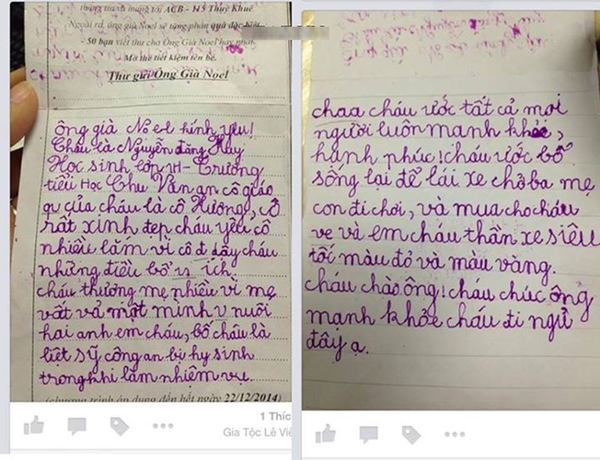 thông tin và mang tới ACB - 115 Thụy Khuê.
Ngoài ra, ông già Noel sẽ tặng phần quà đặc biệt
50 bạn viết thư cho Ông Già Noel hay nhất.
Mở thẻ tiết kiệm tên bé.
Thư gửi Ông Già Noel
ông già No el kính yêu!
Cháu là Nguyễn đăng Huy
Học sinh lớp 1H - Trường
tiểu Học Chu Văn an cô giáo
của cháu là cô Hương, cô
rất xinh đẹp cháu yêu cô
nhiều lắm vì cô dậy cháu
những điều bổ ích
cháu thương mẹ nhiều vì mẹ
vất vả một mình nuôi
hai anh em cháu, bố cháu là
liệt sỹ công an bị hy sinh
trong khi làm nhiệm vụ.
(chương trình áp dụng đến hết ngày 22/12/2014)
1 Thíc
Gia Tộc Lê Viê
cháu ước tất cả mọi
người luôn mạnh khỏe,
hạnh phúc! cháu ước bố
sống lại để lái xe chở ba mẹ
con đi chơi, và mua cho cháu
ve và em cháu thần xe siêu
tốc màu đỏ và màu vàng.
cháu chào ông! cháu chúc ông
mạnh khỏe cháu đi ngủ
đây ạ.